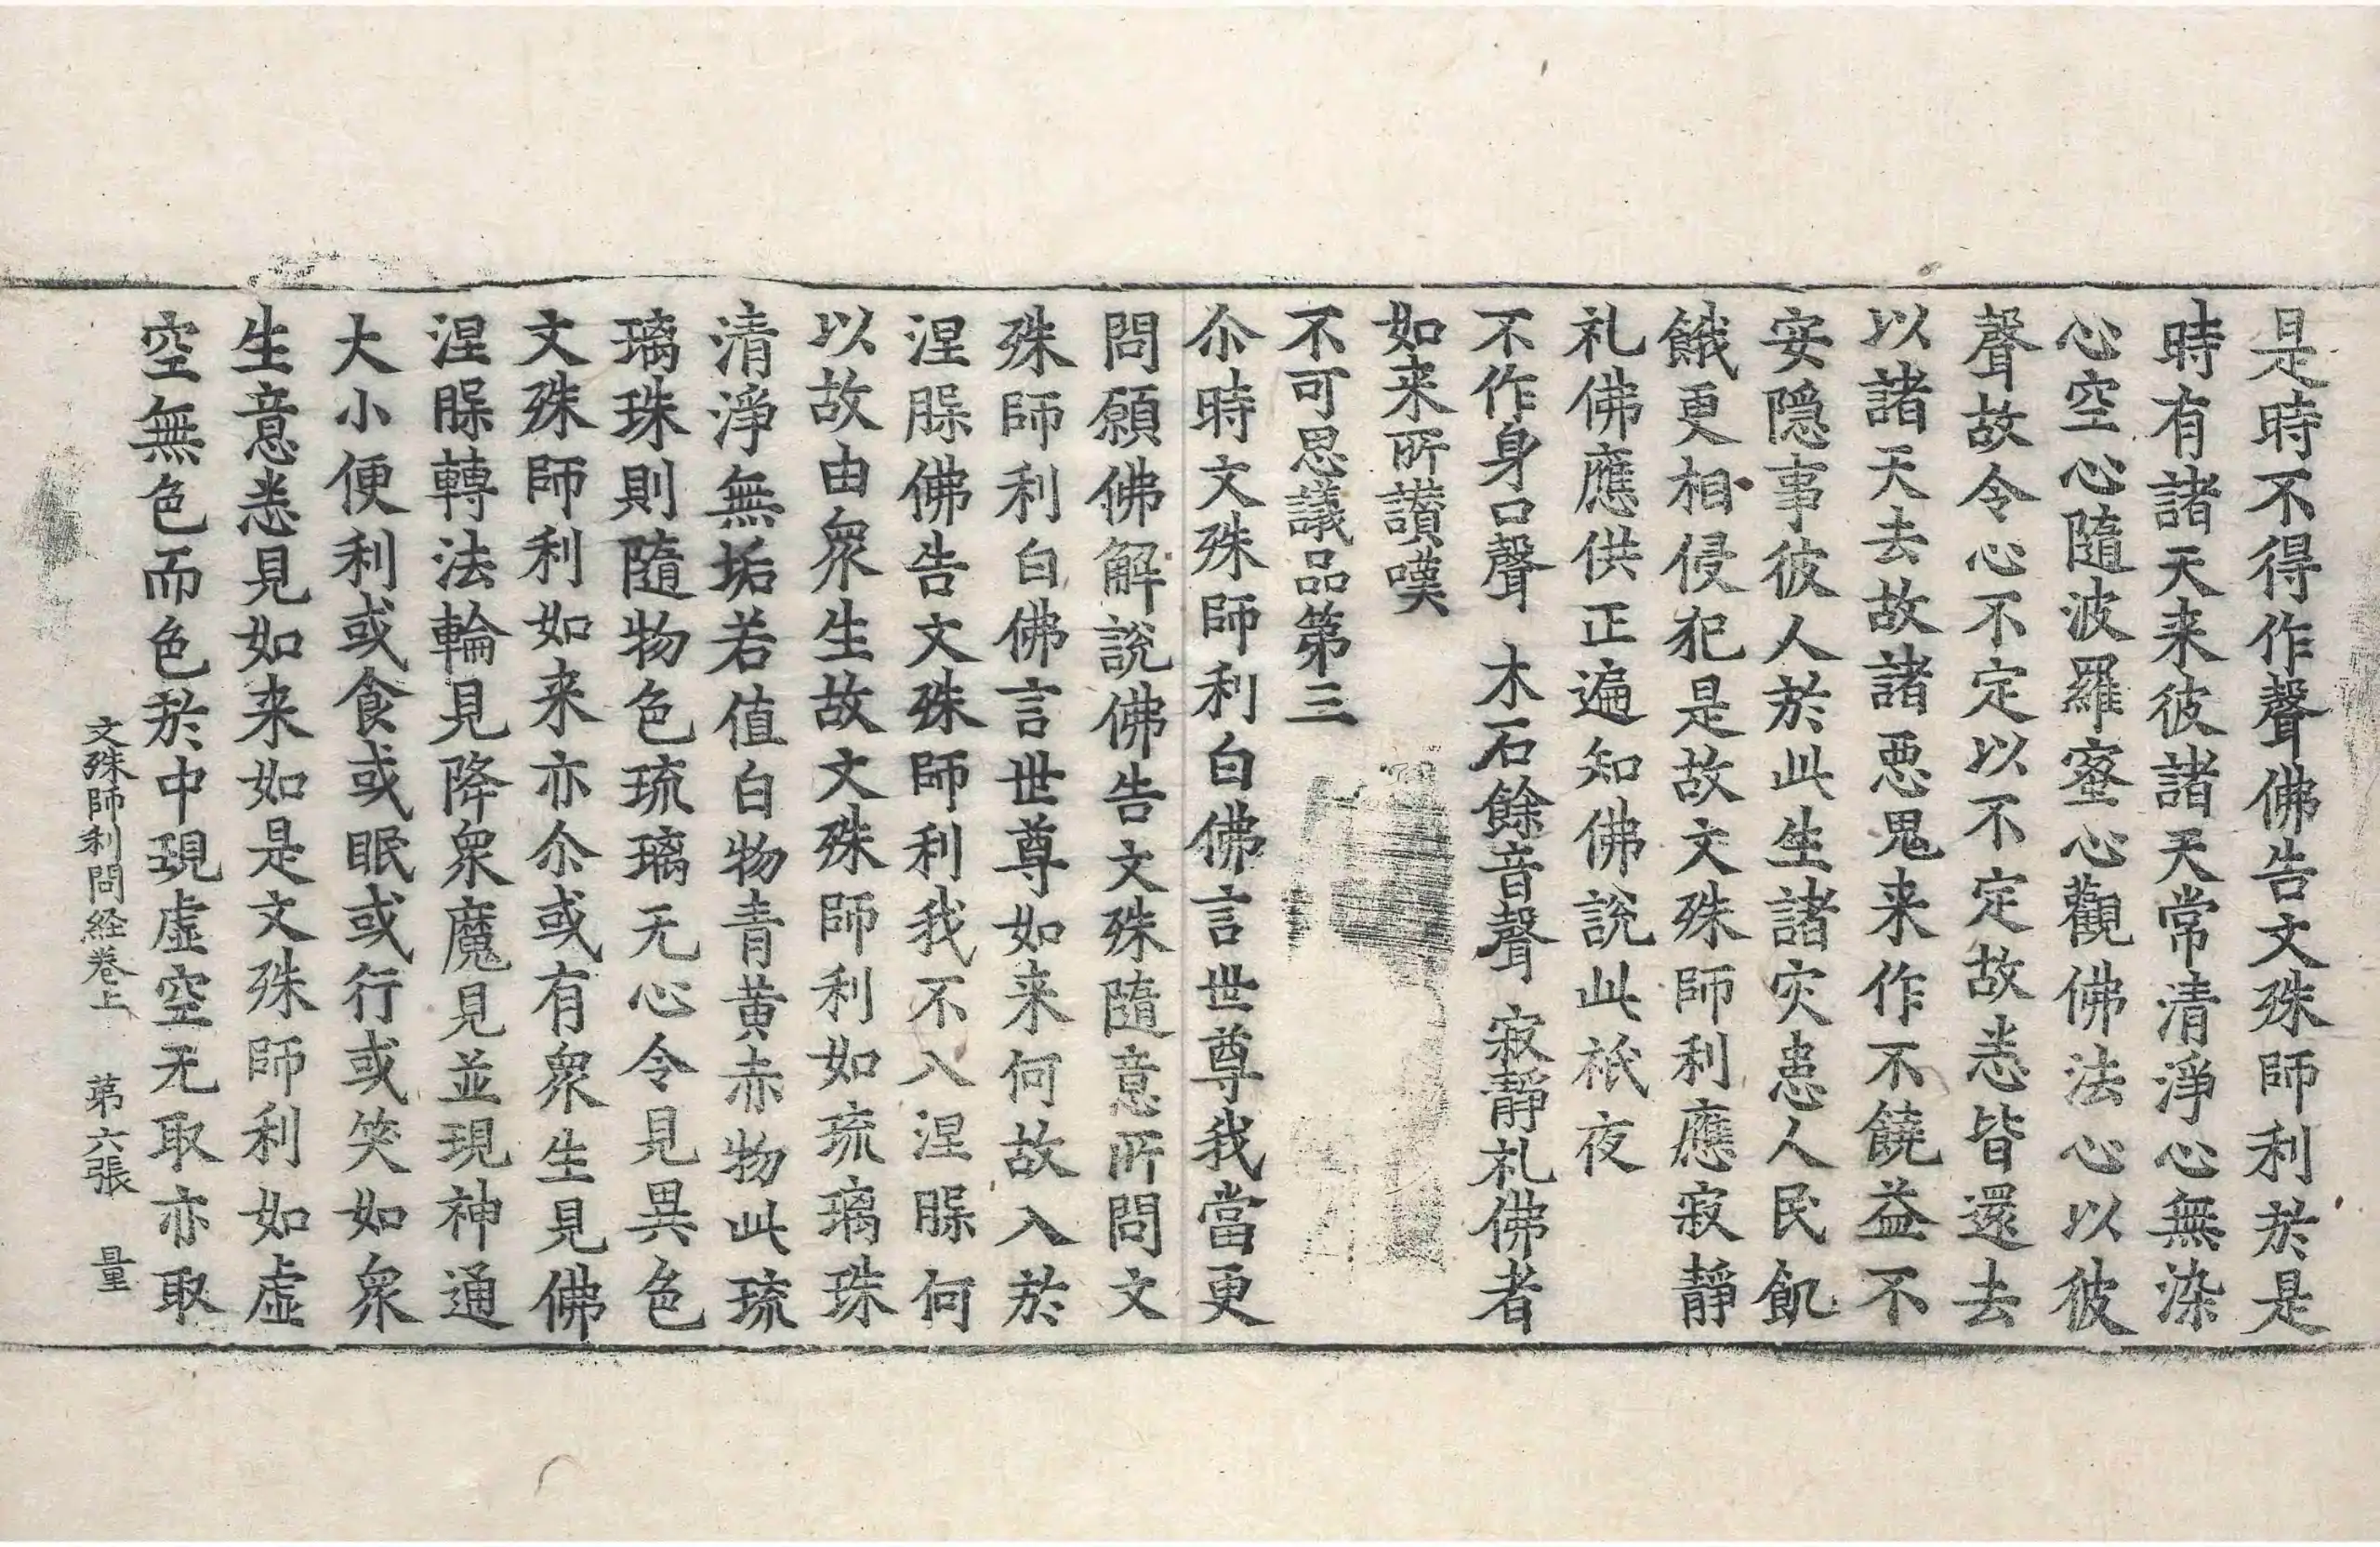 是時不得作聲佛告文殊師利於是
時有諸天来彼諸天常清淨心無染
心空心隨波羅蜜心觀佛法心以彼
聲故令心不定以不定故悉皆還去
以諸天去故諸悪鬼来作不饒益不
安隱事彼人於此生諸灾患人民飢
餓更相侵犯是故文殊師利應寂靜
礼佛應供正遍知佛說此祇夜
不作身口聲 木石餘音聲 寂靜礼佛者
如来所讃嘆
不可思議品第三
尒時文殊師利白佛言世尊我當更
問願佛解說佛告文殊隨意所問文
殊師利白佛言世尊如来何故入於
涅槃佛告文殊師利我不入涅槃何
以故由衆生故文殊師利如琉璃珠
清淨無垢若值白物青黄赤物此琉
璃珠則隨物色琉璃无心令見異色
文殊師利如来亦尒或有衆生見佛
涅槃轉法輪見降衆魔見並現神通
大小便利或食或眠或行或笑如衆
生意悉見如来如是文殊師利如虛
空無色而色於中現虛空无取亦取
文殊師利問経卷上 第六張 量